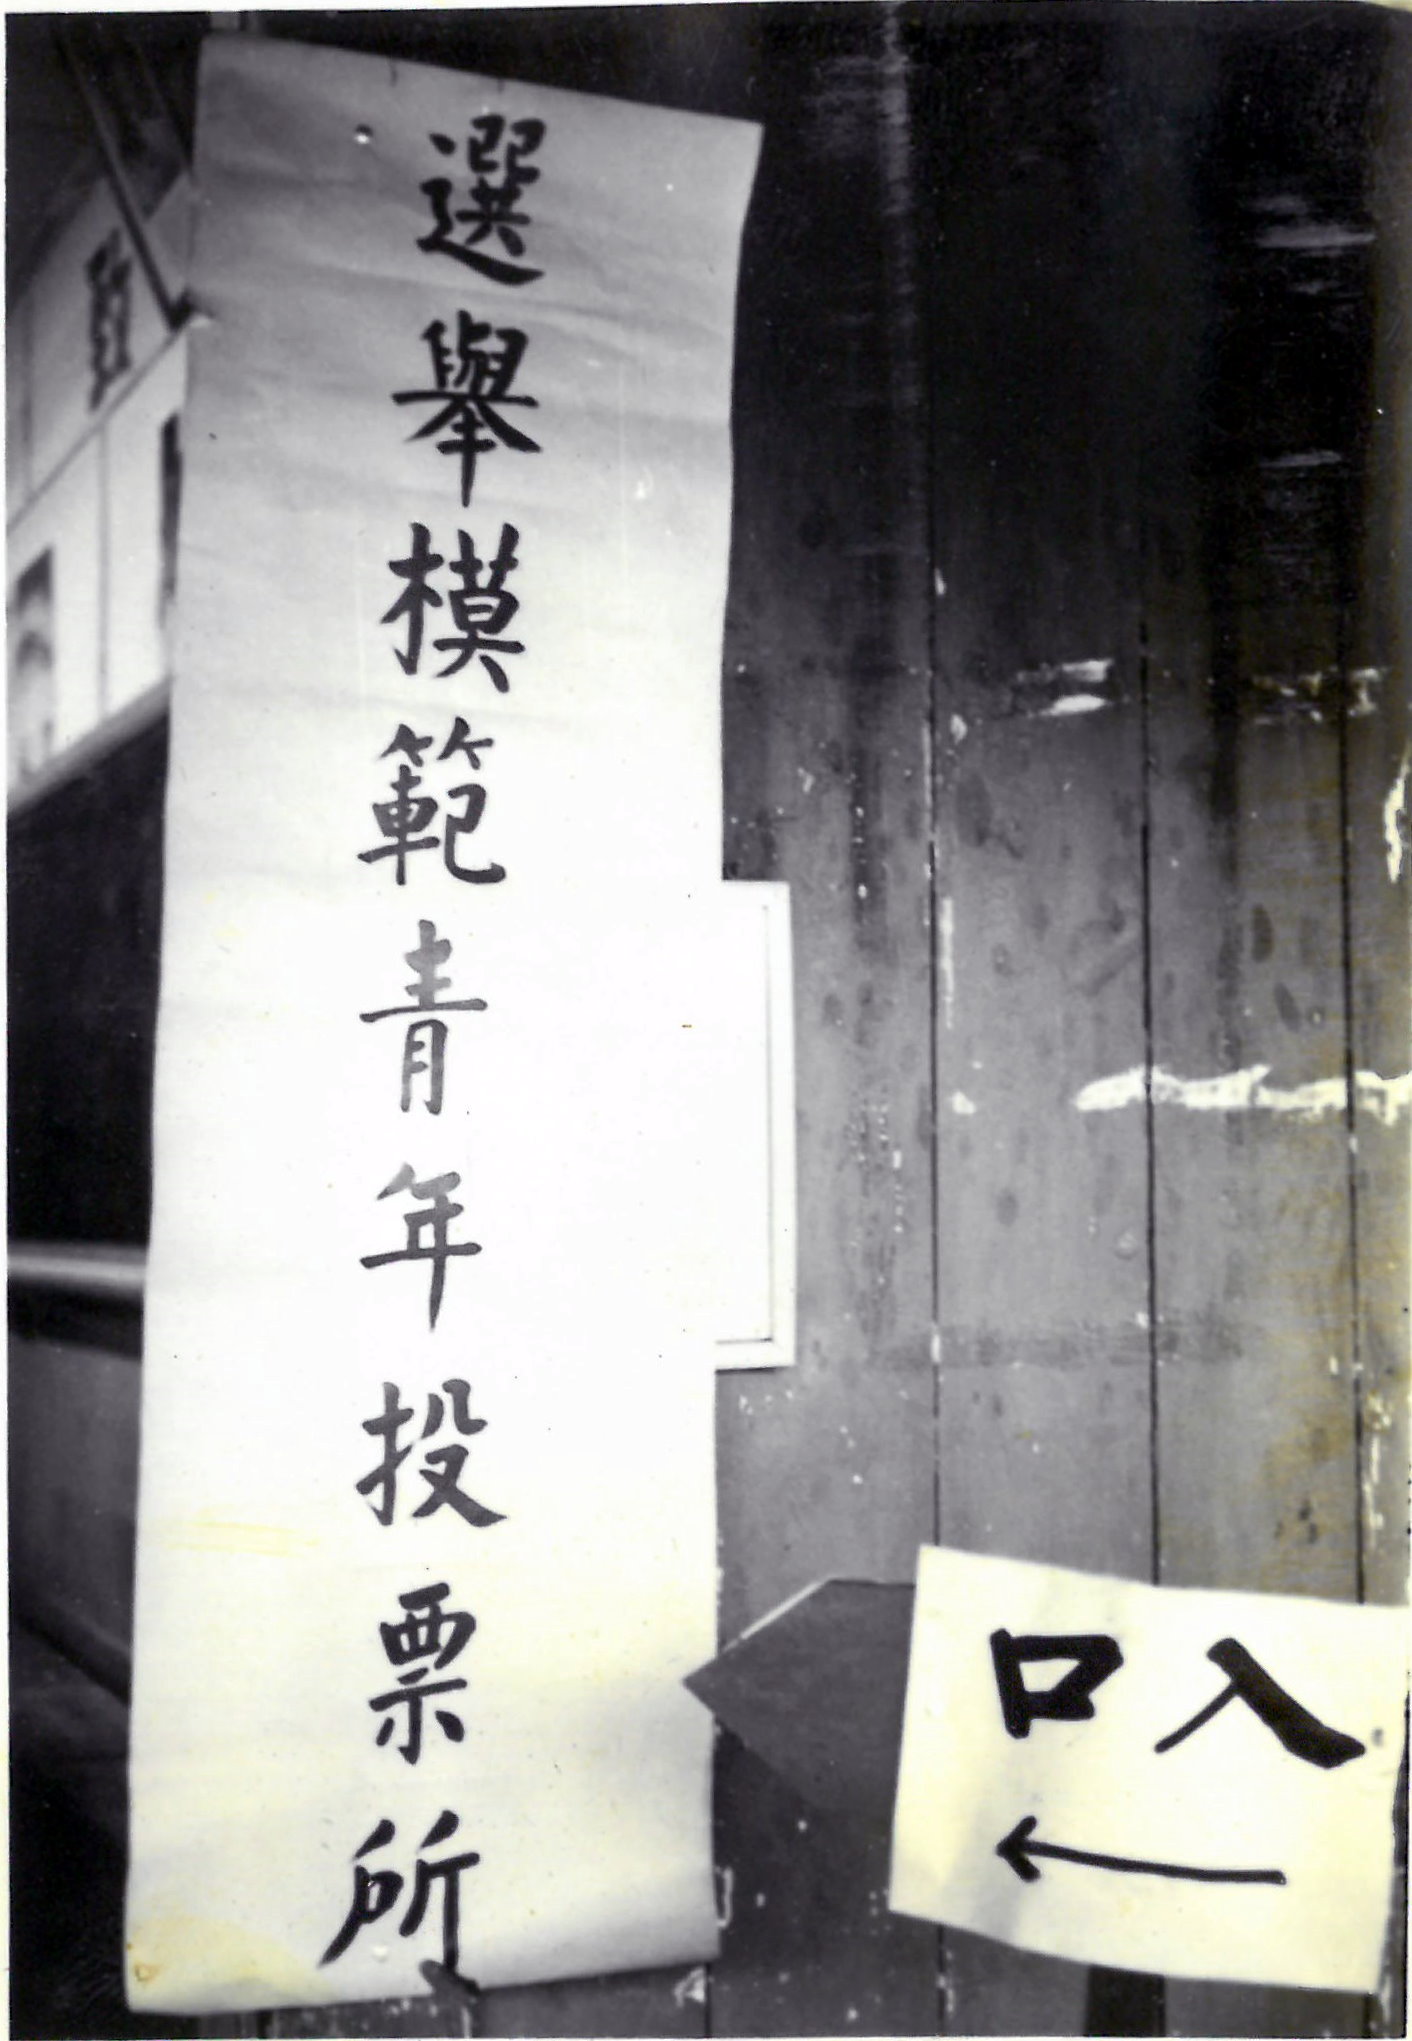 選舉模範青年投票所
入口
←